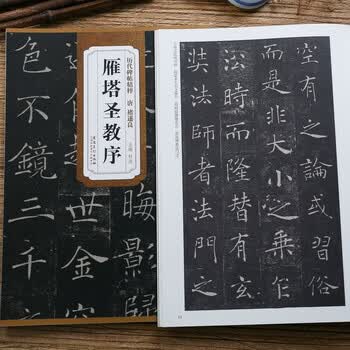 历代碑帖精粹 唐 褚遂良
雁塔圣教序
晦影歸
越世金容
色不鏡三千
空有之論或習俗
而是非大小之乘乍
沿時而隆替有玄
奘法師者法門之